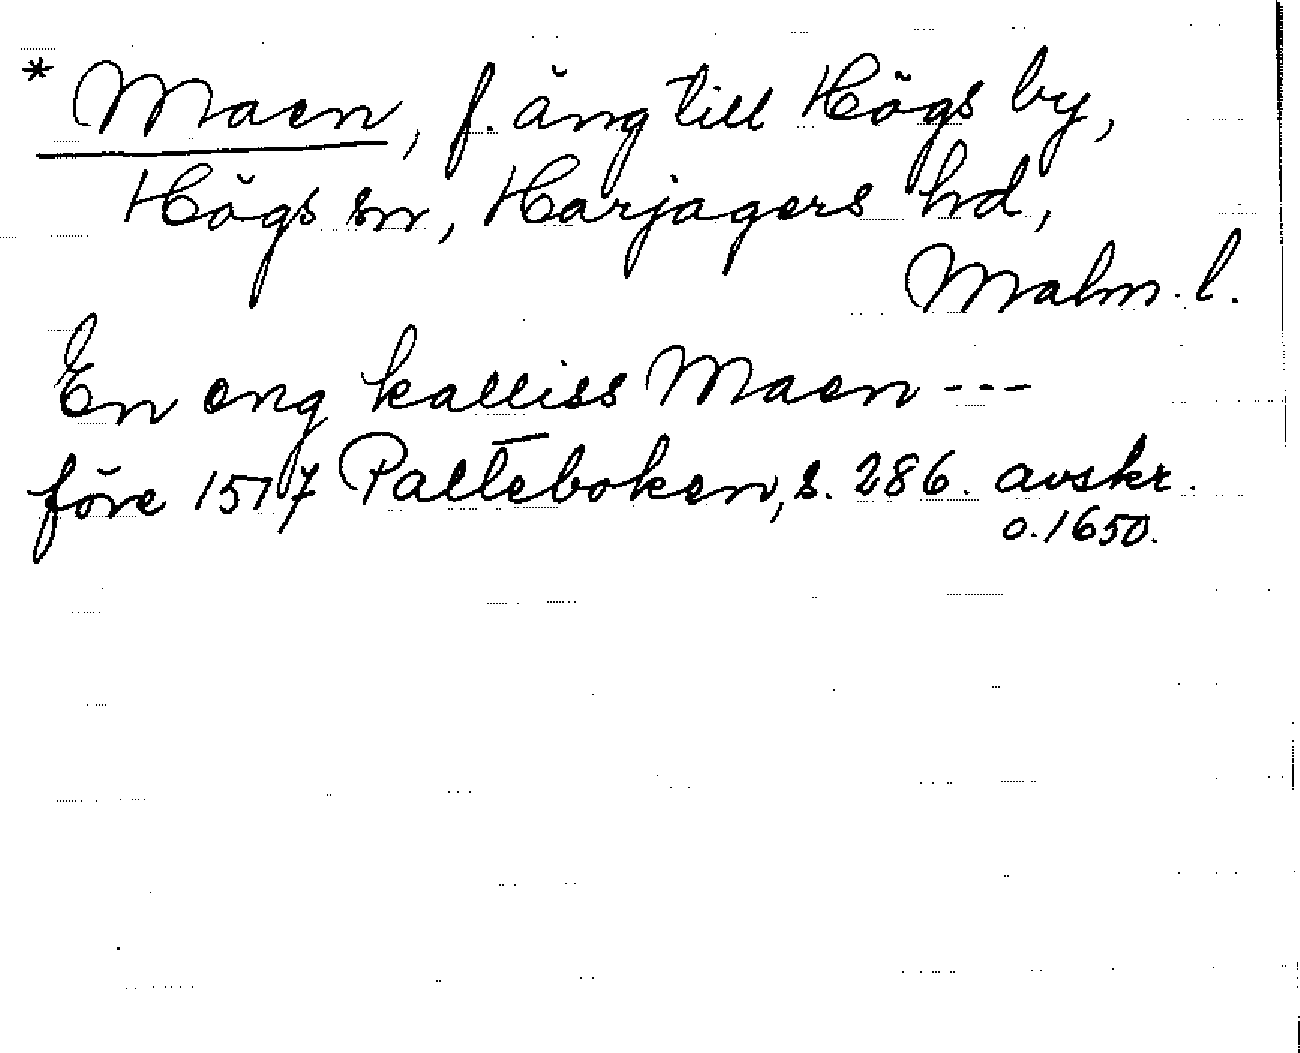 * Maen, f. äng till Högs by,
Högs sn, Harjagers hd,
Malm. l.
En eng kalliss Maen ---
före 1517 Palteboken, s. 286. avskr.
o. 1650.